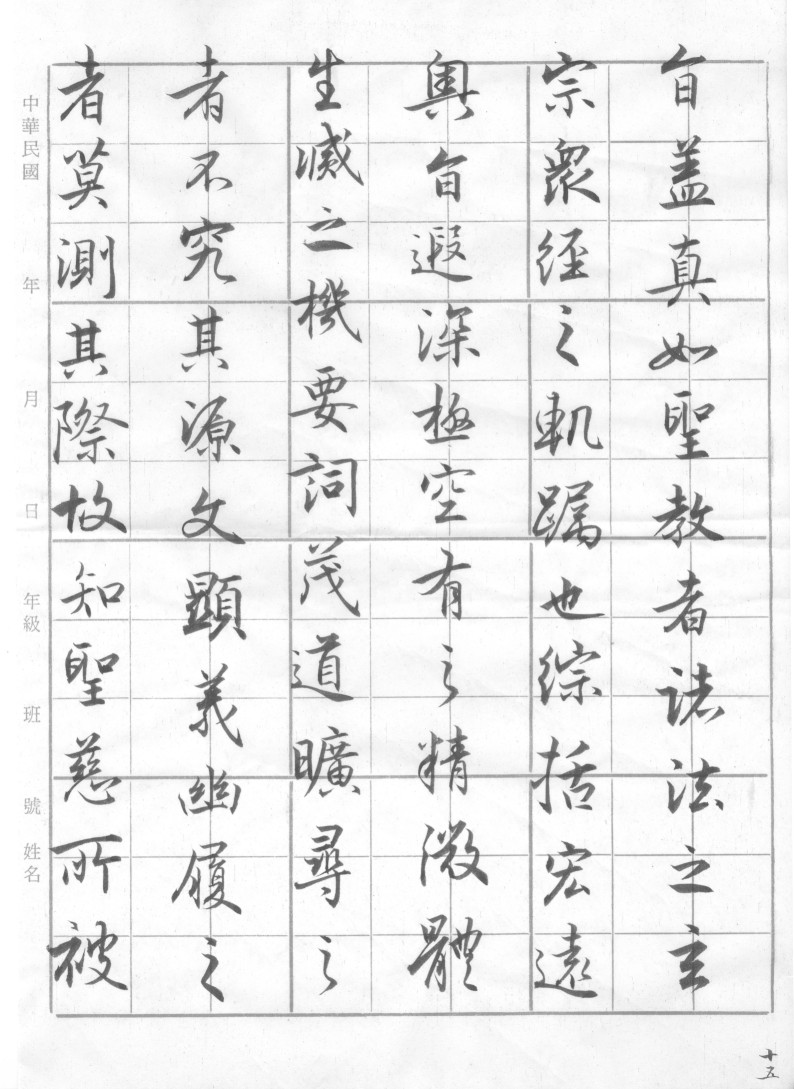 旨盖真如聖教者諸法之玄
宗眾經之軌躅也綜括宏遠
奧旨遐深極空有之精微體
生滅之機要詞茂道曠尋之
者不究其源文顯義幽履之
者莫測其際故知聖慈所被
中華民國 年 月 日 年級 班 號 姓名
十五